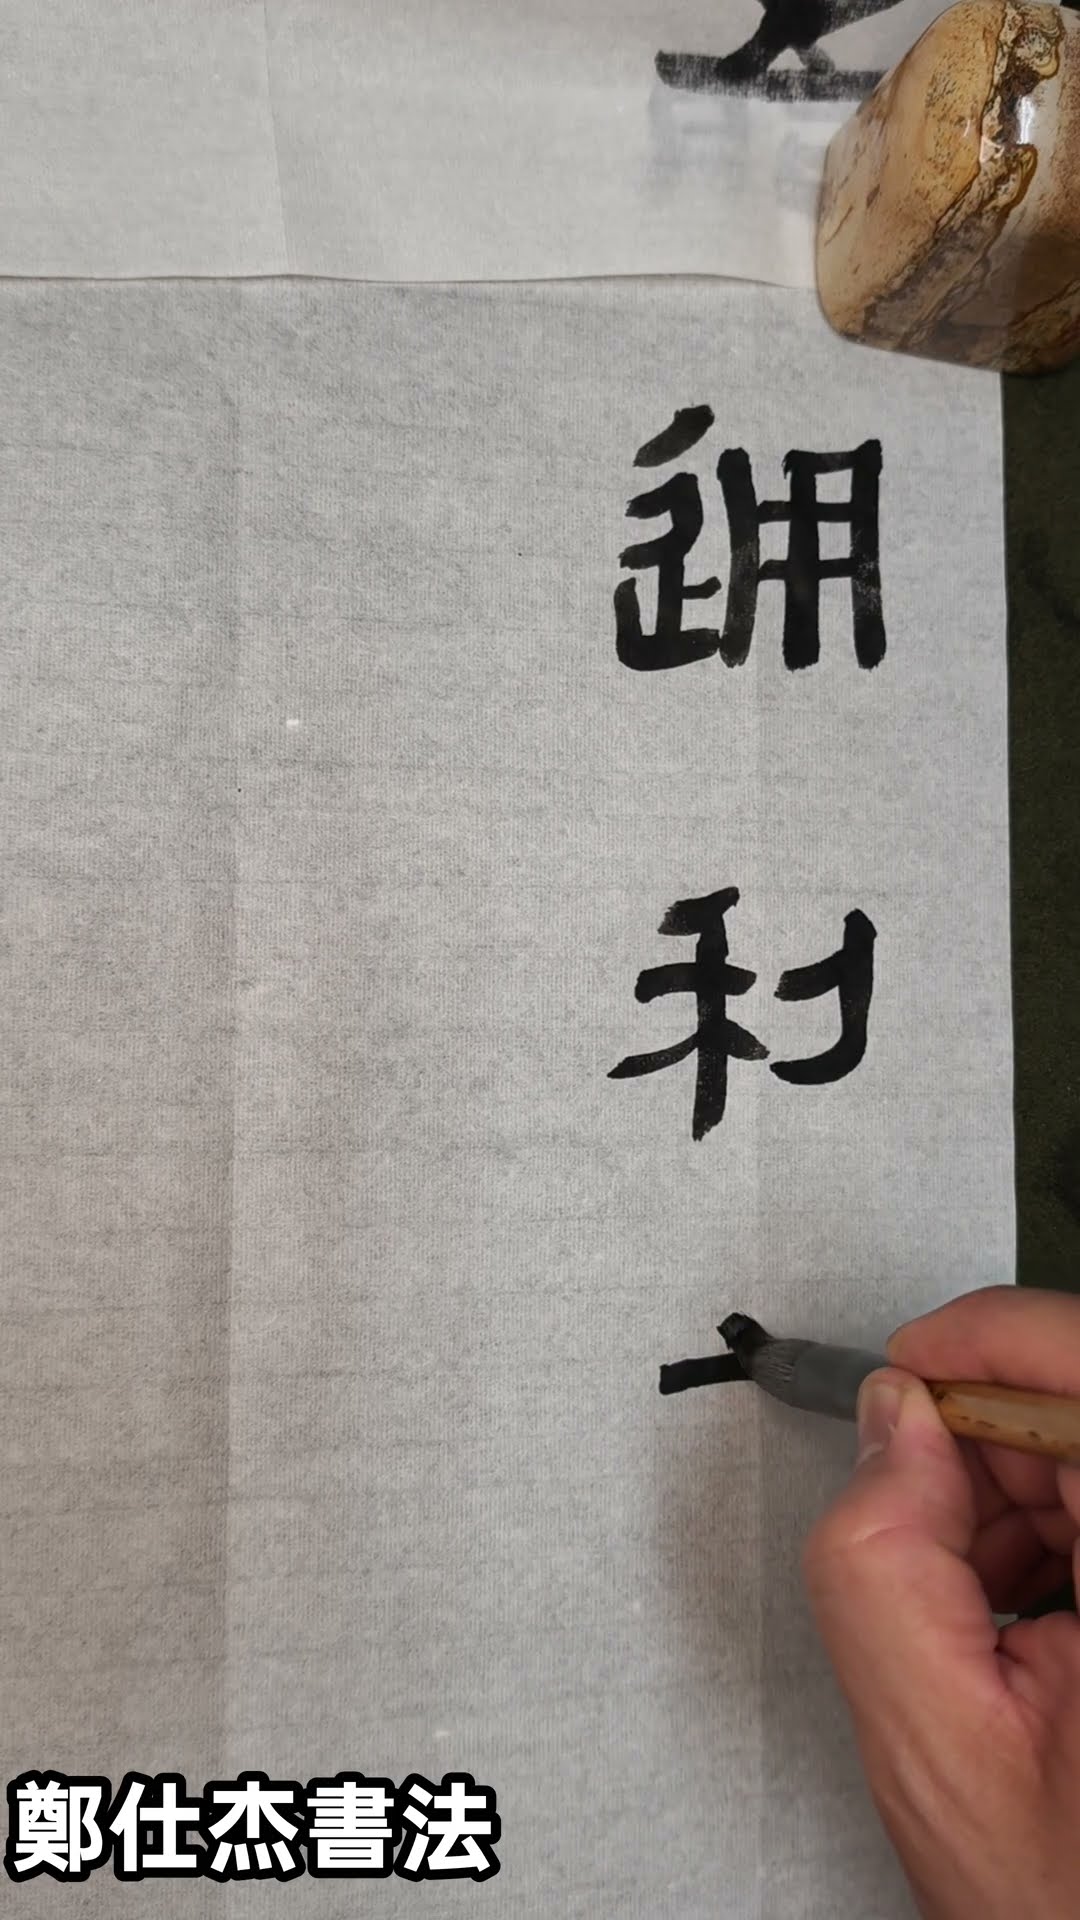 通
利
鄭仕杰書法